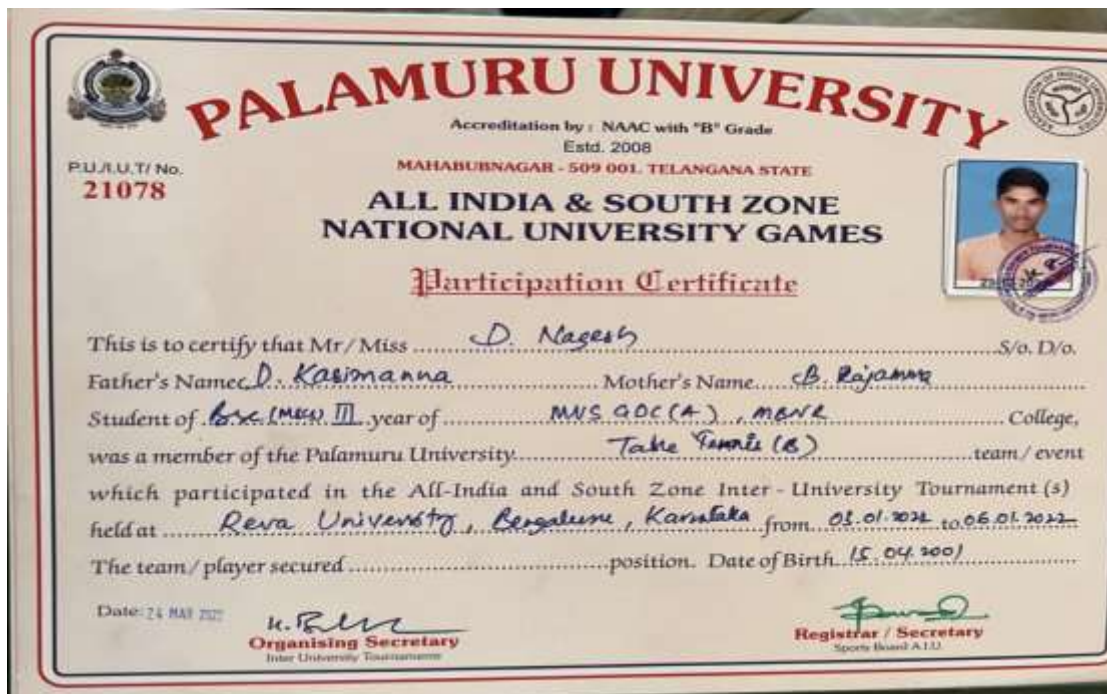 PALAMURU UNIVERSITY
Accreditation by : NAAC with "B" Grade
Estd. 2008
MAHABUBNAGAR - 509 001. TELANGANA STATE
P.U./I.U.T/ No.
21078
ALL INDIA & SOUTH ZONE
NATIONAL UNIVERSITY GAMES
Participation Certificate
This is to certify that Mr/Miss D. Nagesh S/o. D/o.
Father's Name D. Kasimanna Mother's Name B. Rajamma
Student of B.sc III year of MVS GDC(A), MBNR College,
was a member of the Palamuru University Tennis (B) team/event
which participated in the All-India and South Zone Inter-University Tournament(s)
held at Reva University, Karnataka from 03.01.2022 to 06.01.2022
The team/player secured position. Date of Birth 15.04.2001
Date: 24 MAR 2022
Organising Secretary
Inter University Tournaments
Registrar / Secretary
Sports Board A.I.U.